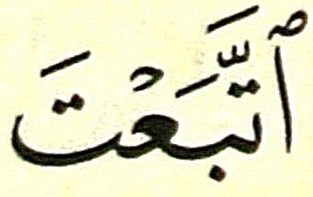 ٱتَّبَعْتَ